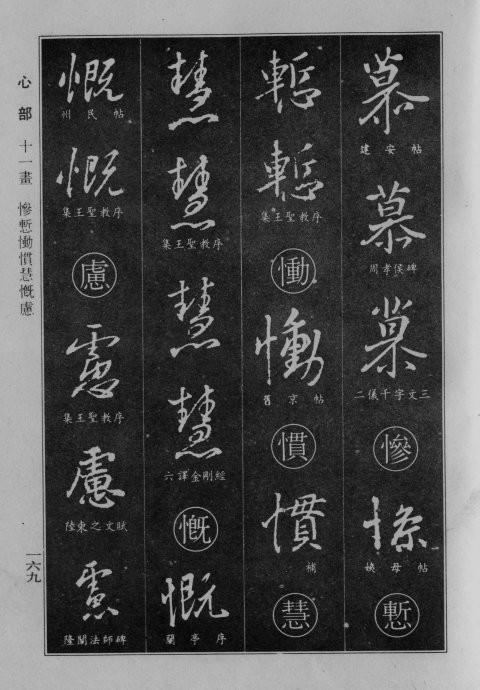 慕
建安帖
慕
周孝侯碑
慕
二儀千字文三
慘
慘
姨母帖
慙
慙
慙
集王聖教序
慟
慟
舊京帖
慣
慣
補
慧
慧
慧
集王聖教序
慧
慧
六譯金剛經
慨
慨
蘭亭序
慨
州民帖
慨
集王聖教序
慮
慮
集王聖教序
慮
陸柬之文賦
慮
隆闡法師碑
心部 十一畫 慘慙慟慣慧慨慮
一六九